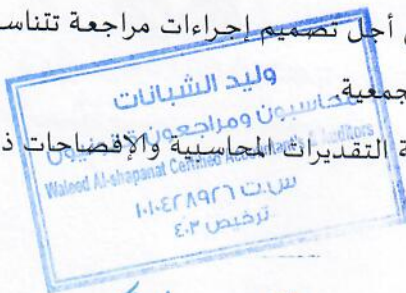 أجل تصميم إجراءات مراجعة تتناس
جمعية.
ة التقديرات المحاسبية والإفصاحات ذ
وليد الشبانات
محاسبون ومراجعون قانونيون
Waleed Al-shapanat Certified Accountants & Auditors
س.ت ١٠١٠٤٢٨٩٢٦
ترخيص ٤٠٣